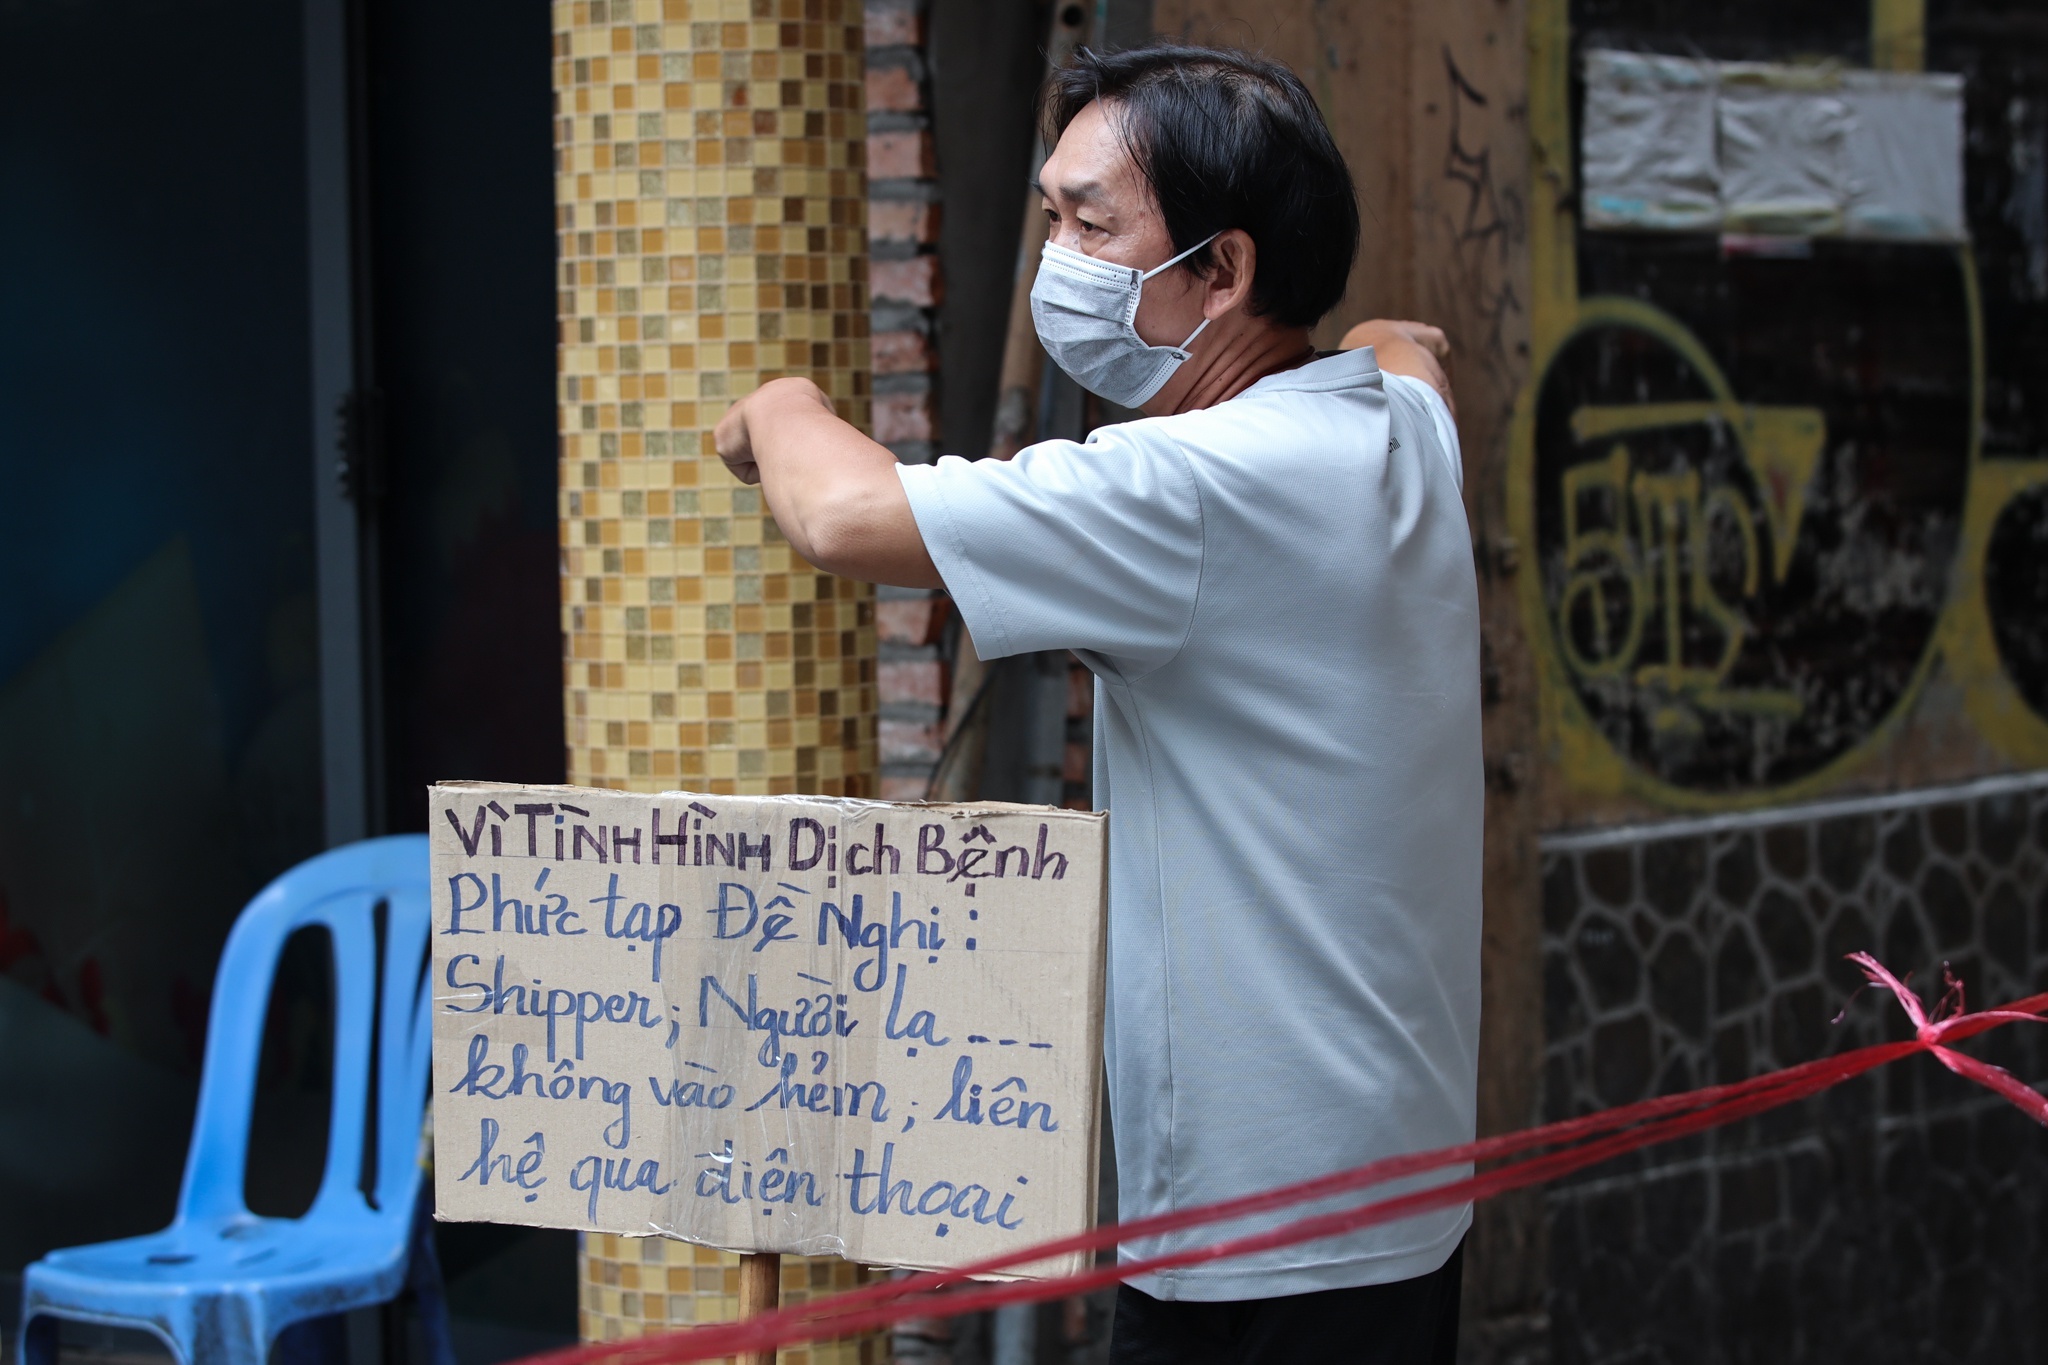 Vì Tình Hình Dịch Bệnh
Phức tạp Đề Nghị :
Shipper; Người lạ ----
không vào hẻm; liên
hệ qua điện thoại